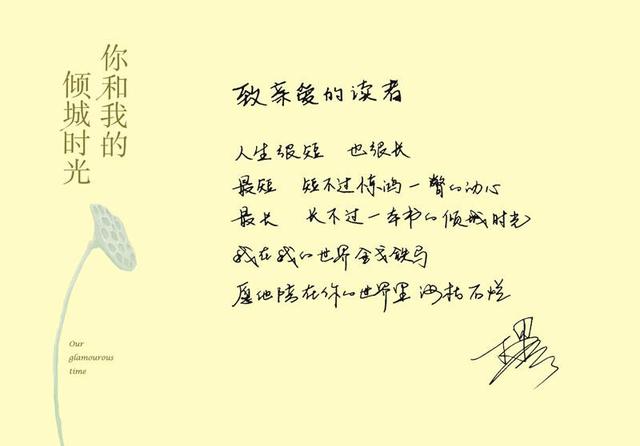 你和我的
倾城时光
Our
glamourous
time
致亲爱的读者
人生很短 也很长
最短 短不过惊鸿一瞥的动心
最长 长不过一本书的倾城时光
我在我的世界金戈铁马
愿他陪在你的世界里 海枯石烂